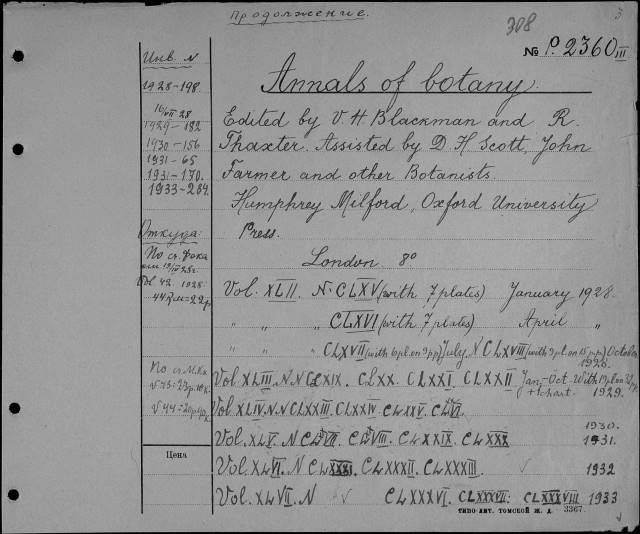 Продолжение.
308
3
№ P. 2360 III
Инв. N
1928-198.
16/VII 28
1929-182
1930-156
1931-65
1931-170.
1933-264.
Annals of botany.
Edited by V. H. Blackman and R.
Thaxter. Assisted by D. H. Scott, John
Farmer and other Botanists.
Humphrey Milford, Oxford University
Press.
London. 8º
Откуда:
По сч. Фока
Vol 42. 1928
Vol. XLII. N. CLXV (with 7 plates) January 1928.
„ „ CLXVI (with 7 plates) April „
„ „ „ CLXVII (with 6 pl. on 9 pp) July. N CLXVIII (with 9 pl. on 15 pp) October
1928.
По сч. М.Кн
Vol XLIII. N N CLXIX. CLXX. CLXXI. CLXXII Jan.-Oct. With 19 pl. on
+ 1 chart. 1929.
Vol XLIV. N. N CLXXIII. CLXXIV. CLXXV. CLXXVI.
1930.
Vol. XLV. N CLXXVII. CLXXVIII. CLXXIX. CLXXX 1931.
Цена
Vol. XLVI. N CLXXXI. CLXXXII. CLXXXIII. 1932
Vol. XLVII. N CLXXXVI. CLXXXVII. CLXXXVIII 1933
ТИПО-ЛИТ. ТОМСКОЙ Ж. Д. 3367.